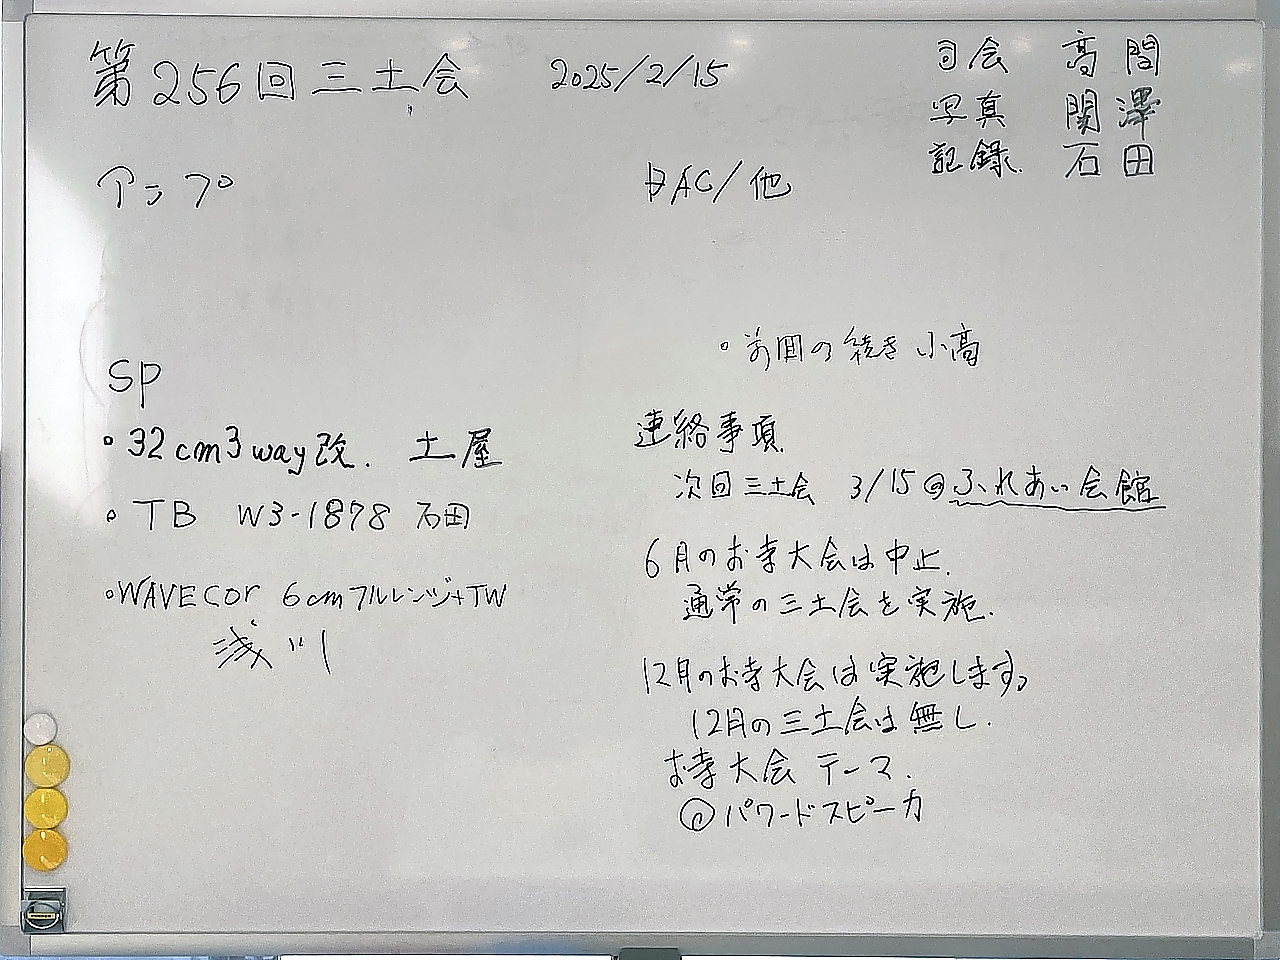 第256回三土会 2025/2/15
司会 高間
写真 関澤
記録. 石田
アンプ
DAC/他
・前回の続き 小高
SP
・32cm3way改. 土屋
・TB W3-1878 石田
・WAVECOr 6cmフルレンジ+TW
浅川
連絡事項.
次回三土会 3/15@ふれあい会館
6月のお寺大会は中止.
通常の三土会を実施.
12月のお寺大会は実施します。
12月の三土会は無し.
お寺大会 テーマ.
@パワードスピーカ